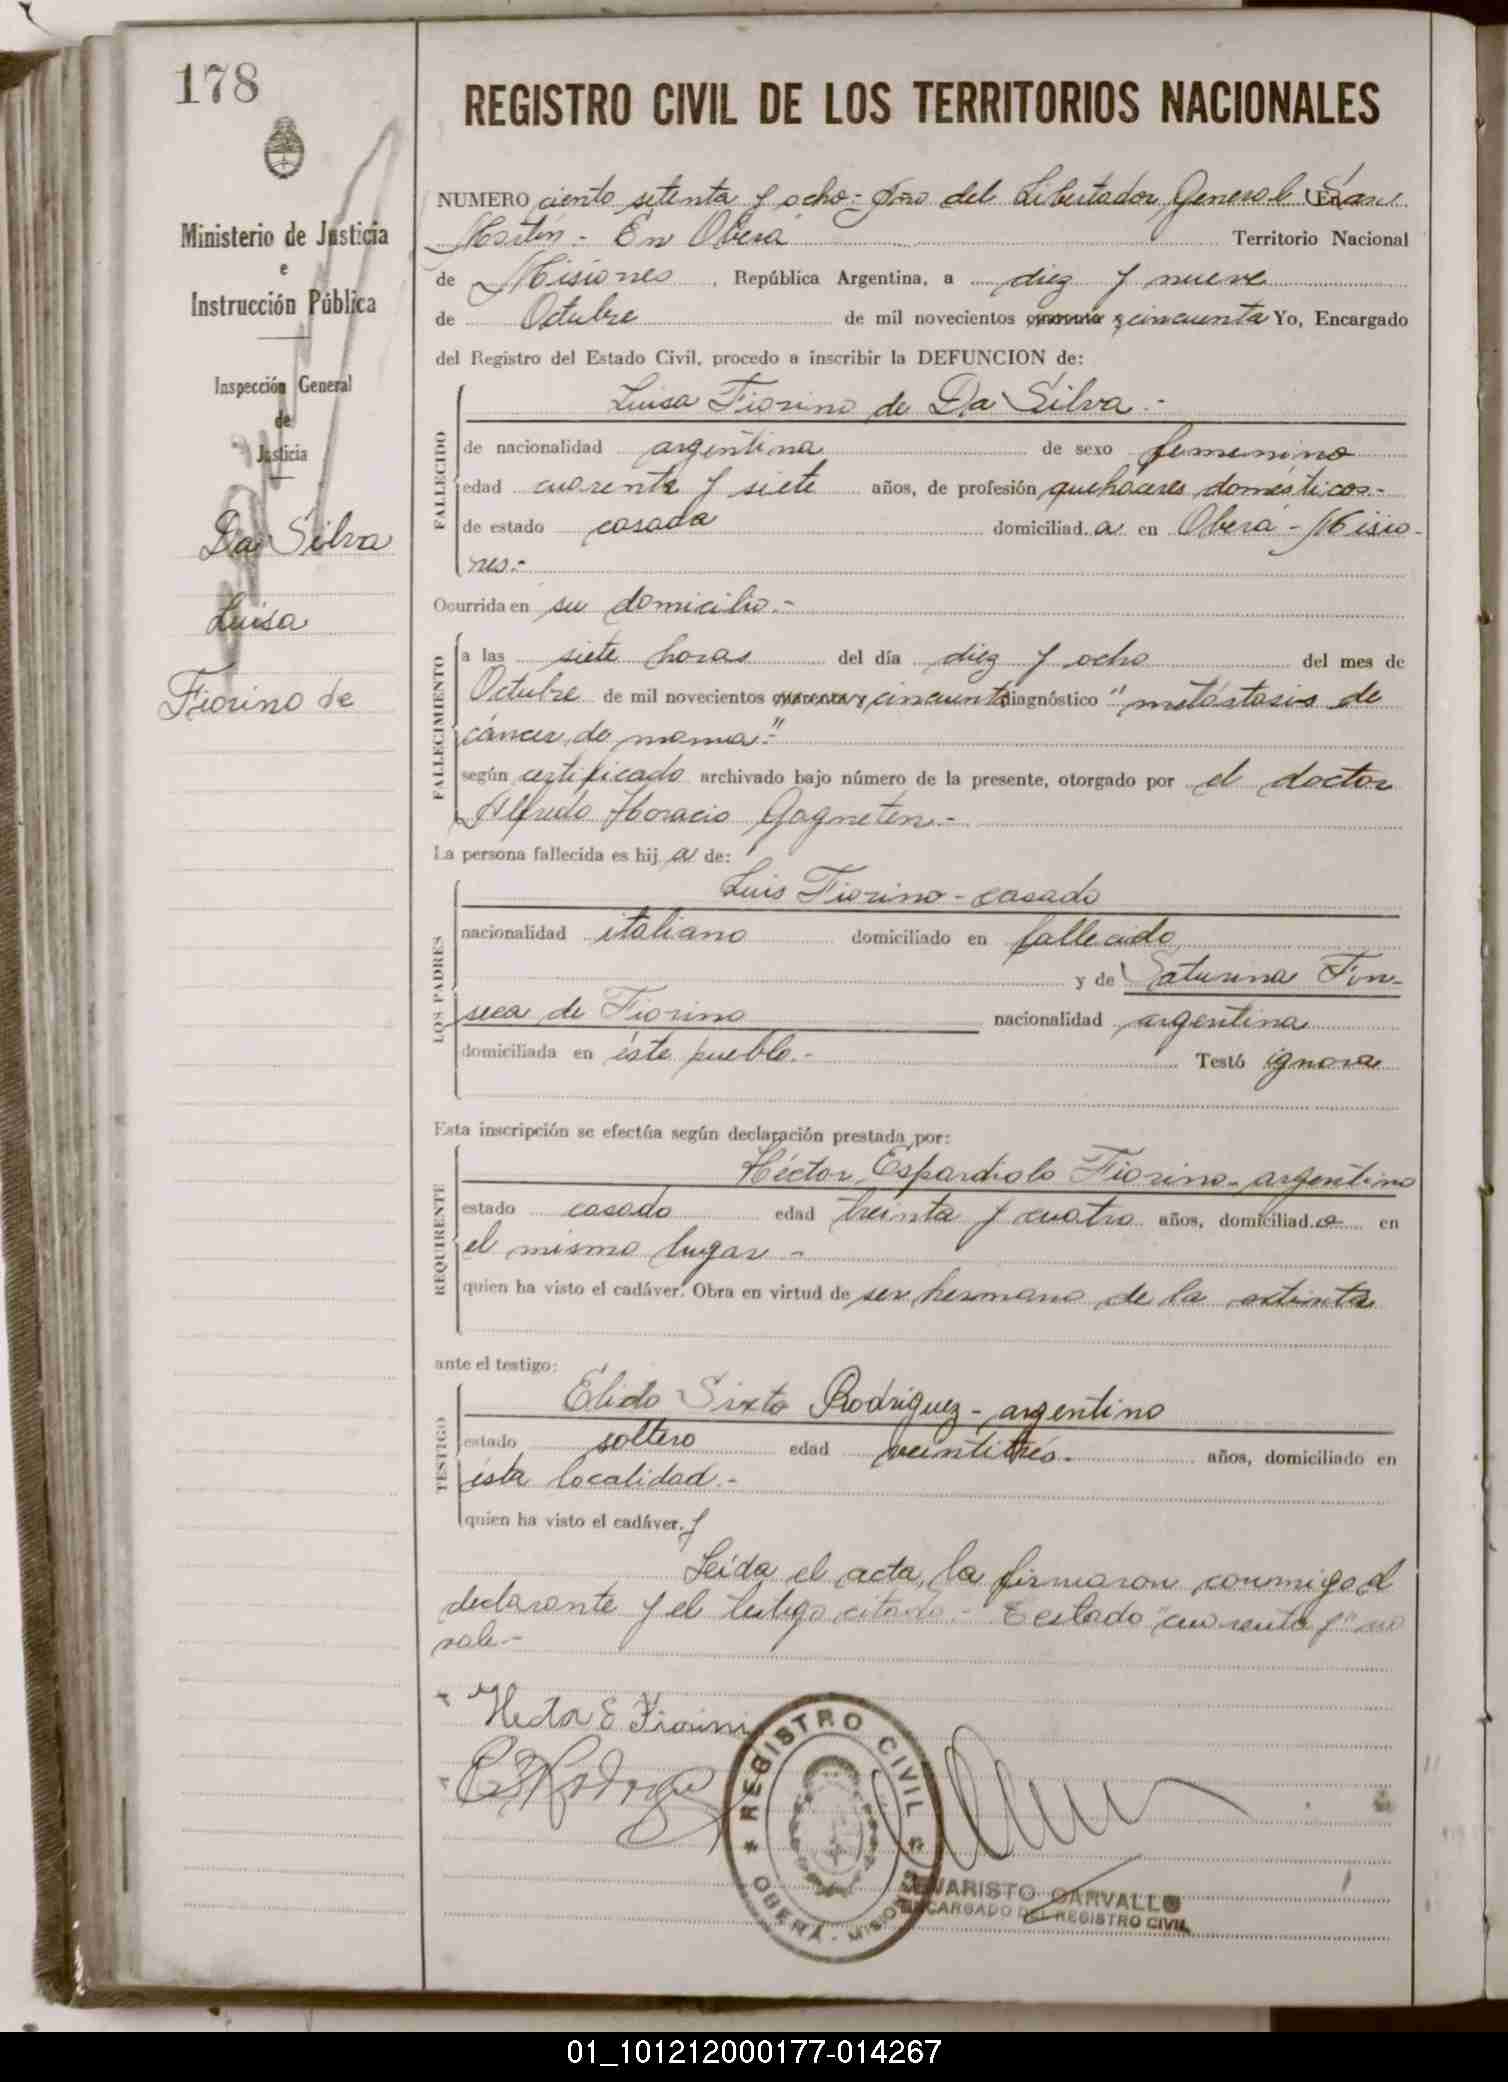 178
REGISTRO CIVIL DE LOS TERRITORIOS NACIONALES
Ministerio de Justicia
e
Instrucción Pública
Inspección General
de
Justicia
Da Silva
Luisa
Fiorino de
NUMERO ciento setenta y ocho.- Año del Libertador General San
Martín - En Oberá Territorio Nacional
de Misiones, República Argentina, a diez y nueve
de Octubre de mil novecientos cuarenta y cincuenta Yo, Encargado
del Registro del Estado Civil, procedo a inscribir la DEFUNCION de:
FALLECIDO
Luisa Fiorino de Da Silva.-
de nacionalidad argentina de sexo femenino
edad cuarenta y siete años, de profesión quehaceres domésticos.-
de estado casada domiciliad.a en Oberá - Misio-
nes.-
Ocurrida en su domicilio.-
FALLECIMIENTO
a las siete horas del día diez y ocho del mes de
Octubre de mil novecientos cuarenta y cincuenta diagnóstico "metástasis de
cáncer de mama."
según certificado archivado bajo número de la presente, otorgado por el doctor
Alfredo Horacio Gagneten.-
La persona fallecida es hij a de:
LOS PADRES
Luis Fiorino - casado
nacionalidad italiano domiciliado en fallecido
y de Saturina Fon-
seca de Fiorino nacionalidad argentina
domiciliada en éste pueblo.- Testó ignora
Esta inscripción se efectúa según declaración prestada por:
REQUIRENTE
Héctor Fiorino - argentino
estado casado edad treinta y cuatro años, domiciliad.o en
el mismo lugar -
quien ha visto el cadáver. Obra en virtud de ser hermano de la extinta
ante el testigo:
TESTIGO
Élido Sixto Rodríguez - argentino
estado soltero edad veintitrés.- años, domiciliado en
ésta localidad.-
quien ha visto el cadáver. y
Leída el acta, la firmaron conmigo el
declarante y el testigo citado.- Testado "cuarenta y" no
vale.-
Hector E Fiorini
REGISTRO CIVIL
OBERÁ - MISIONES
EVARISTO CARVALLO
ENCARGADO DEL REGISTRO CIVIL
01_101212000177-014267